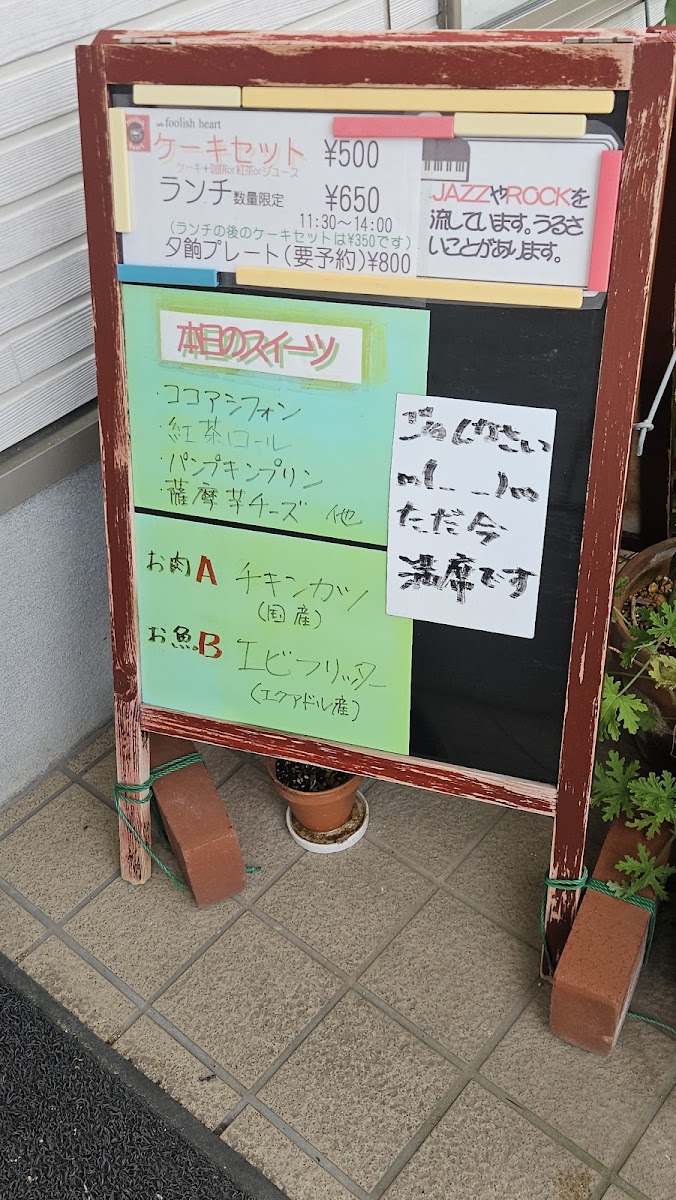 cafe foolish heart
ケーキセット ¥500
ケーキ+珈琲or紅茶orジュース
ランチ数量限定 ¥650
11:30〜14:00
(ランチの後のケーキセットは¥350です)
夕餉プレート(要予約)¥800
JAZZやROCKを
流しています。うるさ
いことがあります。
本日のスイーツ
・ココアシフォン
・紅茶ロール
・パンプキンプリン
・薩摩芋チーズ 他
お肉A チキンカツ
(国産)
お魚B エビフリッター
(エクアドル産)
ごめんなさい
m(_ _)m
ただ今
満席です